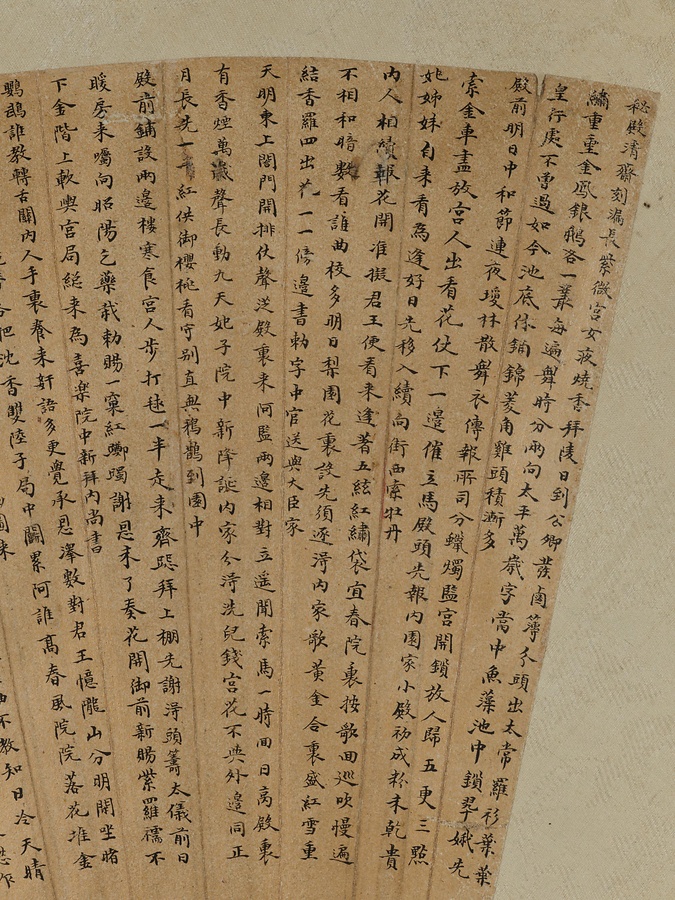 秘殿清齋刻漏長紫微宮女夜燒香拜陵日到公卿發鹵簿分頭出太常羅衫葉葉
繡重重金鳳銀鵝各一叢每遍舞時分兩向太平萬歲字當中魚藻池中鎖翠娥先
皇行處不曾過如今池底休鋪錦菱角雞頭積漸多
殿前明日中和節連夜瓊林散舞衣傳報所司分蠟燭監宮開鎖放人歸五更三點
索金車盡放宮人出看花仗下一邊催立馬殿頭先報內園家小殿初成粉未乾貴
妃姊妹自来看為逢好日先移入續向街西索牡丹
內人相續報花開准擬君王便看来逢著五絃紅繡袋宜春院裏按歌回巡吹慢遍
不相和暗數看誰曲校多明日梨園花裏設先須逐淂內家歌黃金合裏盛紅雪重
結香羅四出花一一傍邊書勅字中官送與大臣家
天明東上閤門開排仗聲遙殿裏来阿監兩邊相對立遥聞索馬一時回日高殿裏
有香煙萬歲聲長動九天妃子院中新降誕內家分淂洗兒錢宮花不共外邊同正
月長先一半紅供御櫻桃看守別直無鴉鵲到園中
殿前鋪設兩邊樓寒食宮人步打毬一半走来齊跽拜上棚先謝淂頭籌太儀前日
暖房来囑向昭陽乞藥栽勅賜一窠紅躑躅謝恩未了奏花開御前新賜紫羅襦不
下金階上軟輿宮局総来為喜樂院中新拜內尚書
鸚鵡誰教轉舌關內人手裏養来奸語多更覺承恩澤數對君王憶隴山分明閑坐賭
各把沈香雙陸子局中鬬累阿誰高春風院院落花堆金
不教知日冷天晴